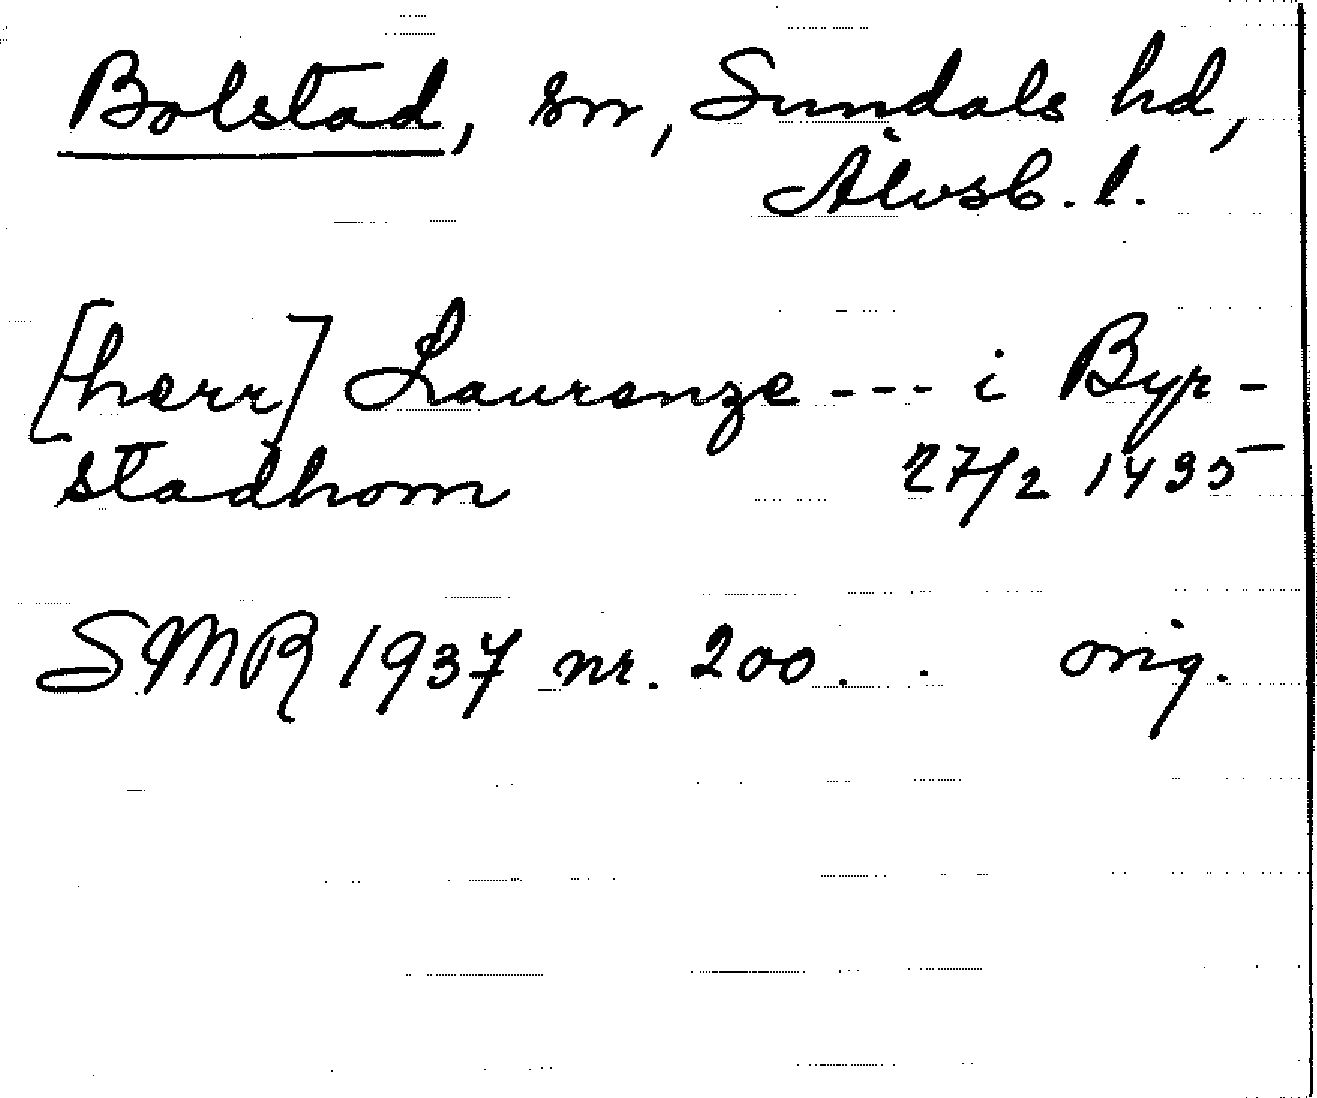 Bolstad, sn, Sundals hd,
Älvsb. l.
[herr] Laurenze --- i Byr-
stadhom 27/2 1435
SMR 1937 nr. 200. . orig.